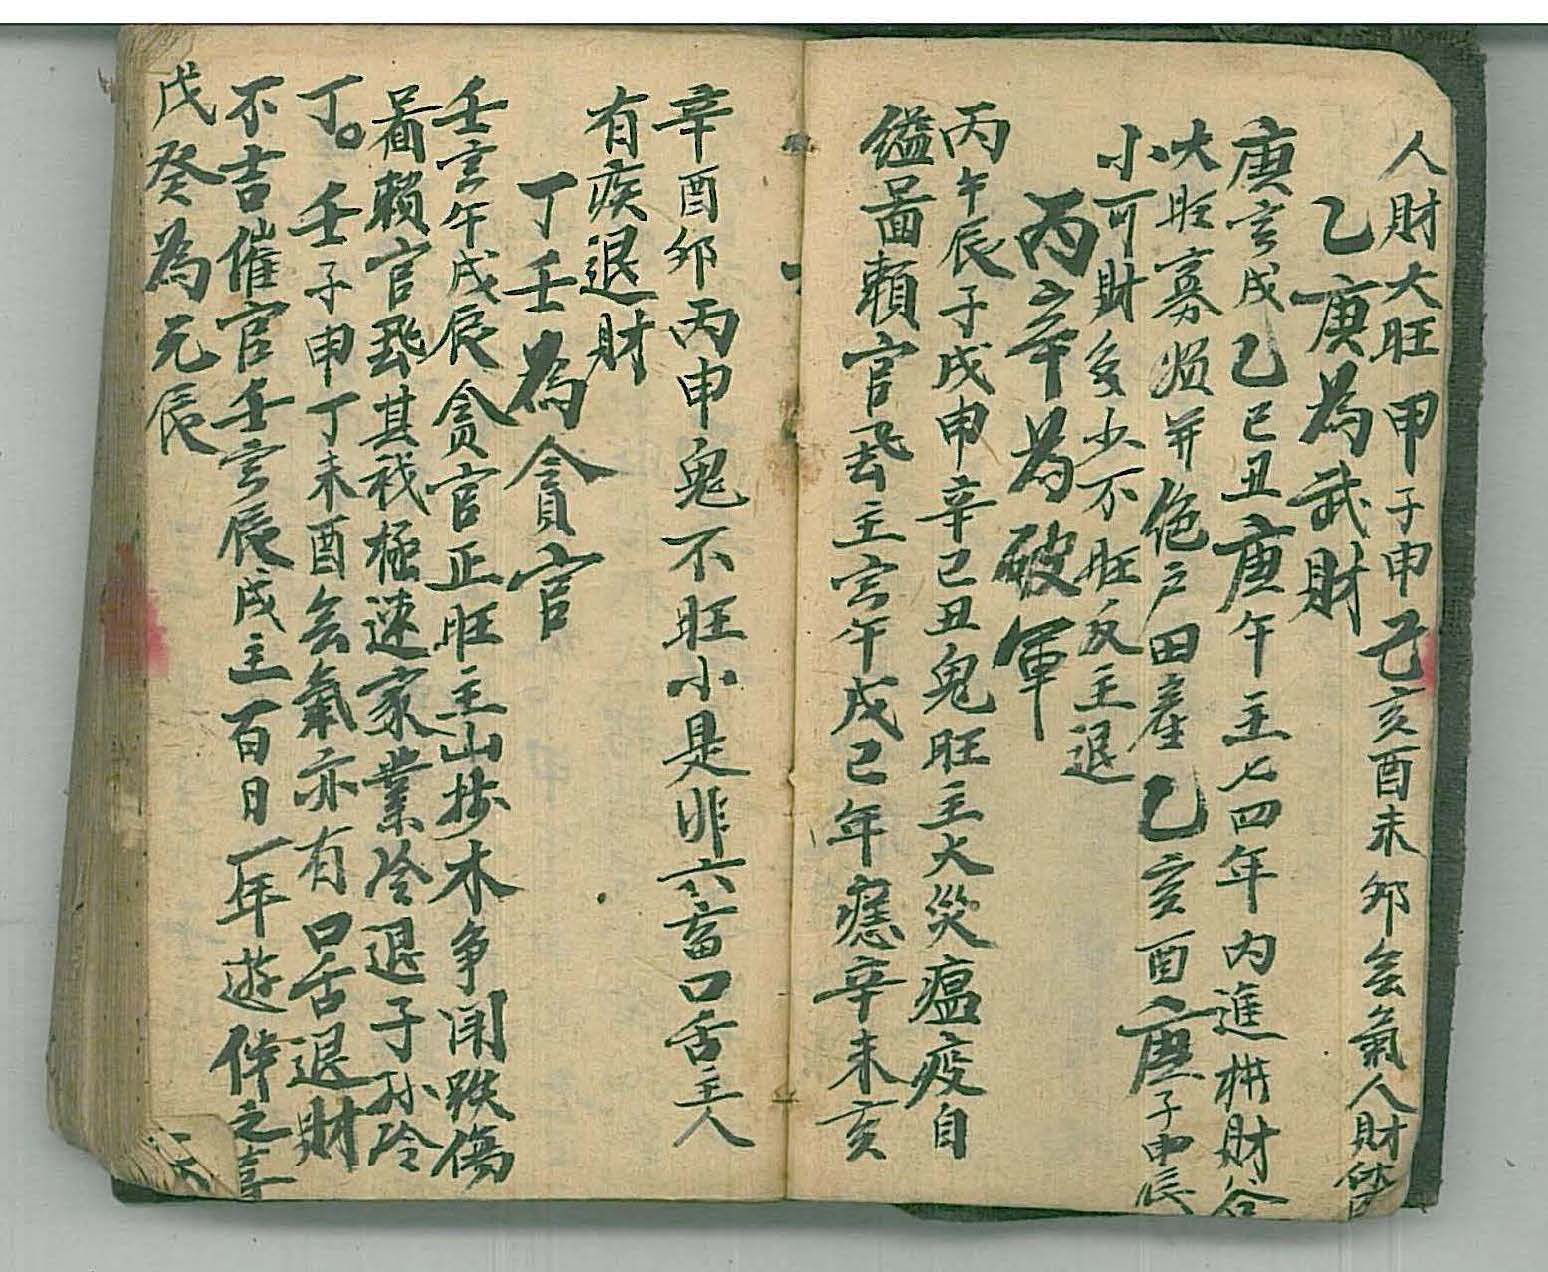 人財大旺甲子申乙亥酉未卯会氣人財
乙庚為武財
庚寅戌乙巳丑庚午主七四年內進横財
大旺寡 并絶戶田產乙亥酉庚子申辰
小可財多少不旺反主退
丙辛為破軍
丙午辰子戌申辛巳丑鬼旺主大災瘟疫自
縊啚賴官 主寅午戌已年 辛未亥
辛酉卯丙申鬼不旺小是非六畜口舌主人
有疾退財
丁壬為貪官
壬寅午戌辰貪官正旺主山坟木争闹跌傷
啚賴官 甚 極速家業冷退子孙冷
丁。壬子申丁未酉会氣亦有口舌退財
不吉催官壬寅辰戌主一百日一年遊 之
戊癸為元辰